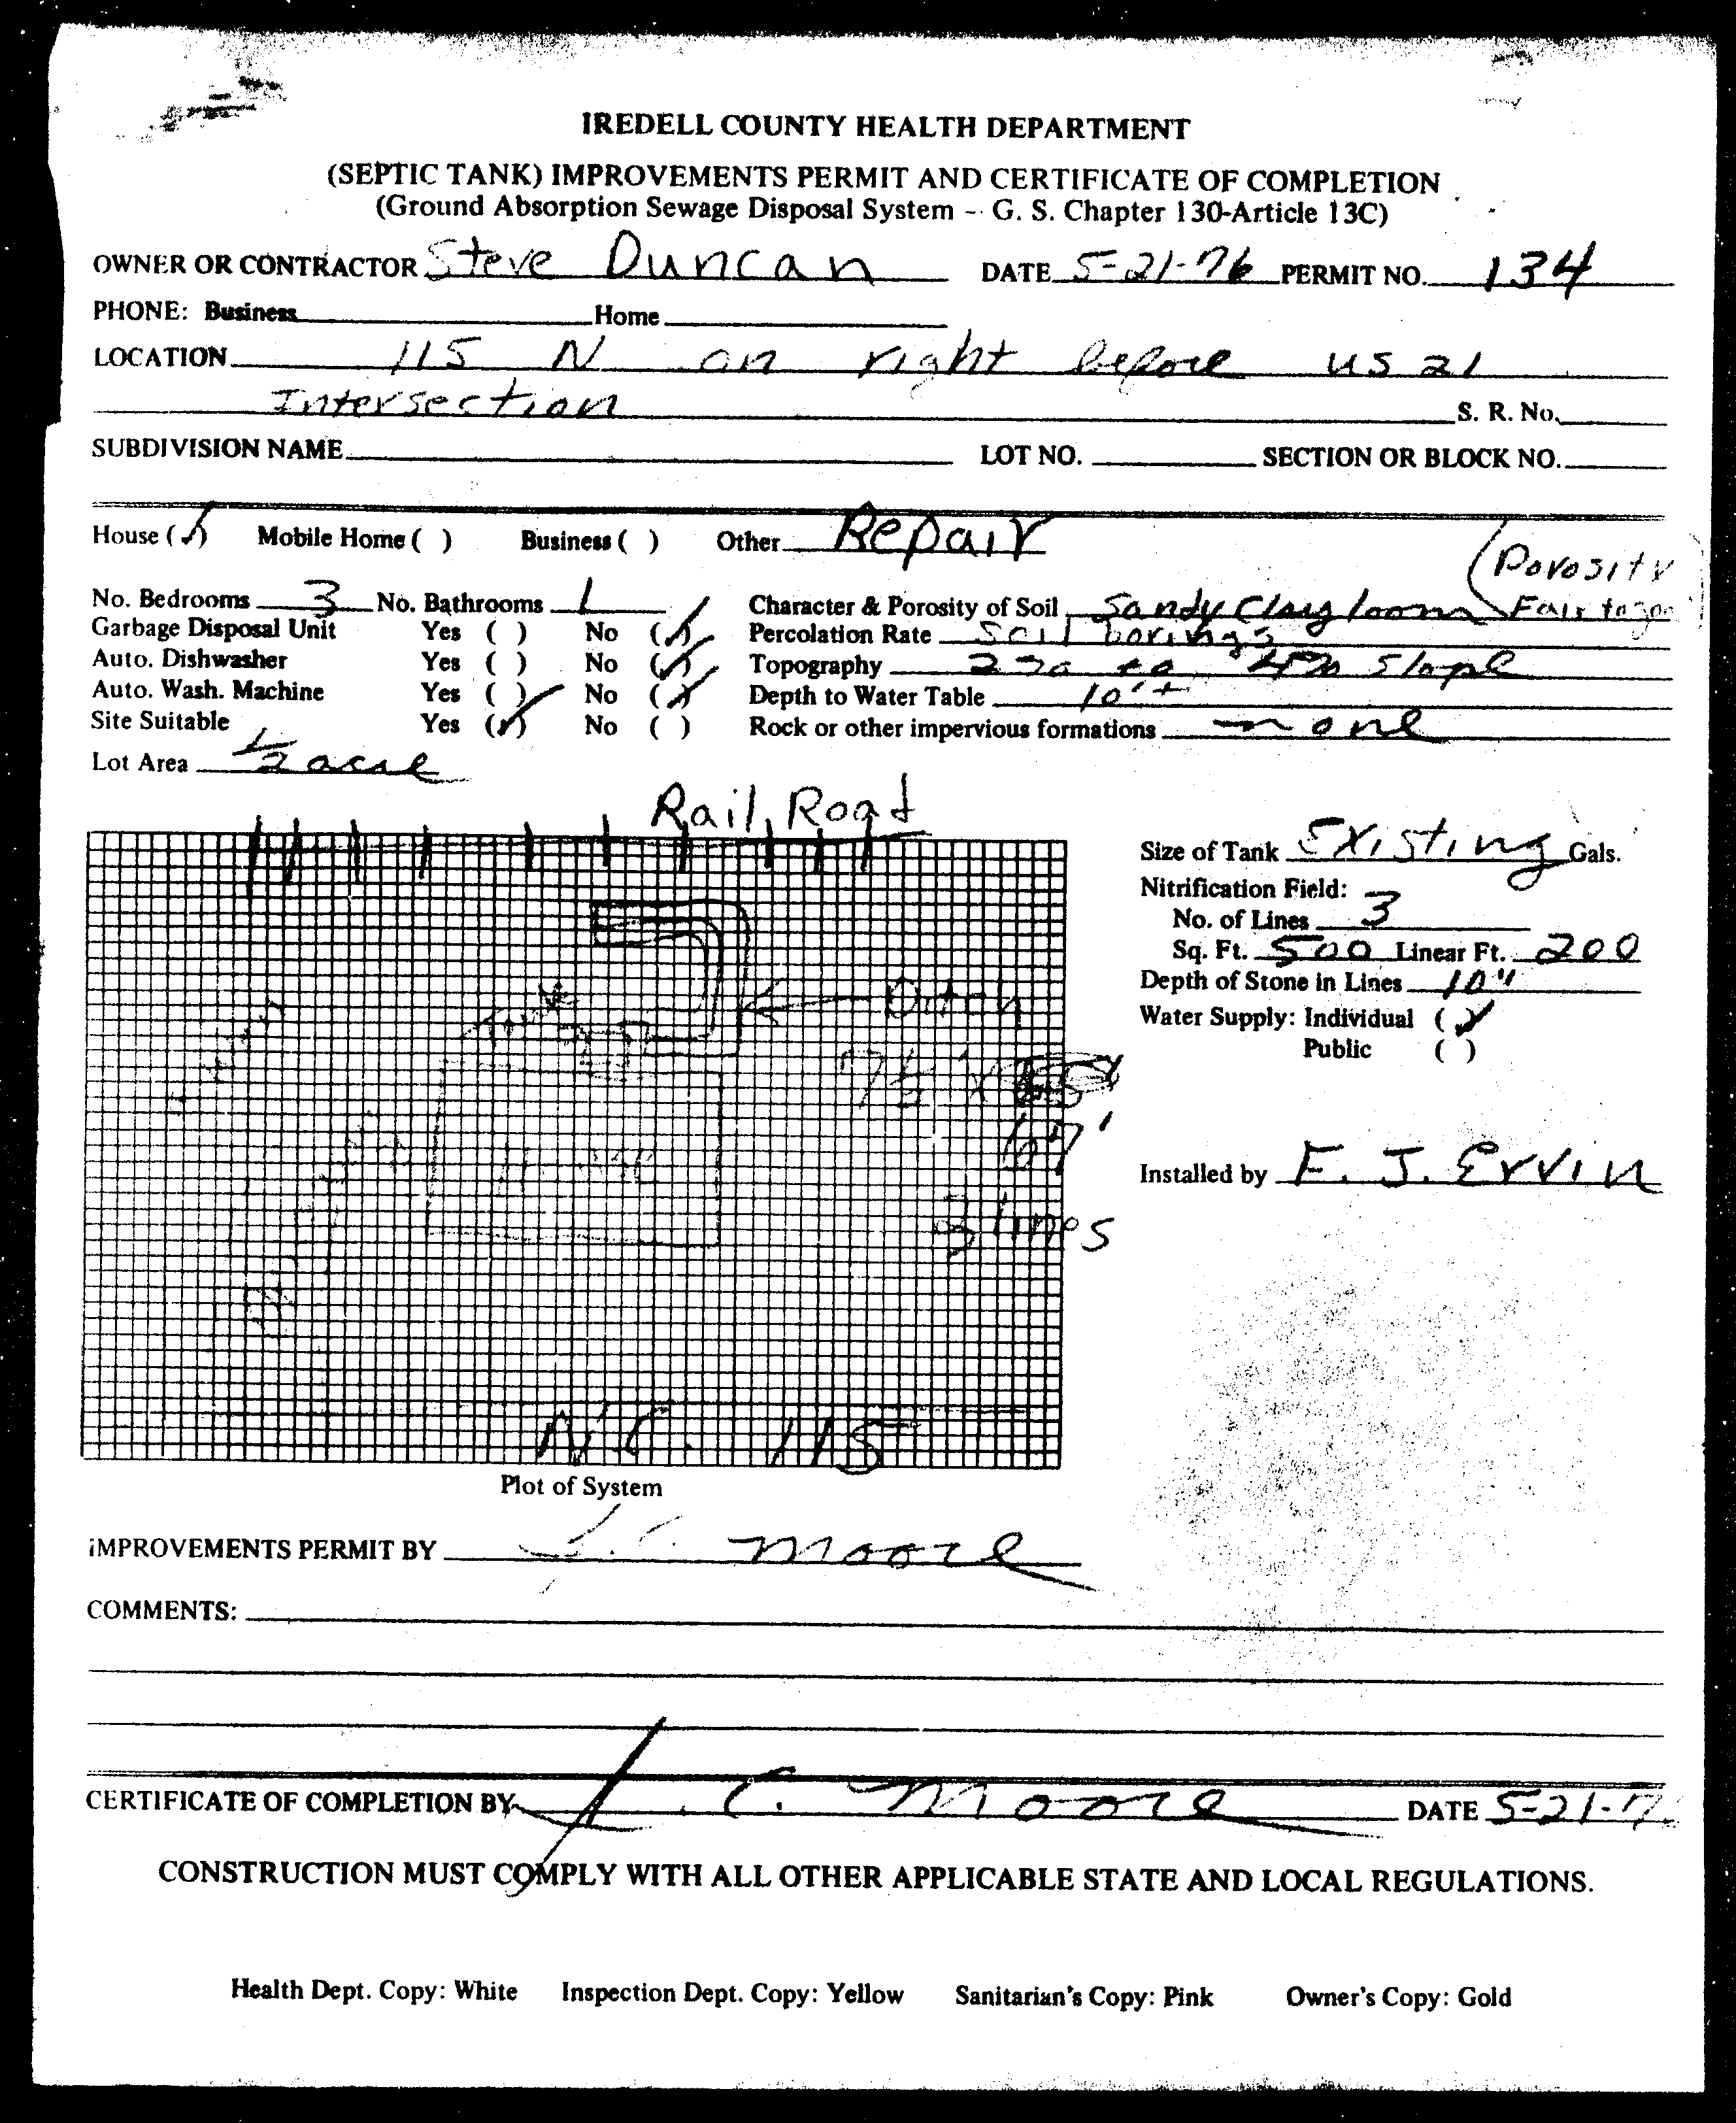 IREDELL COUNTY HEALTH DEPARTMENT
(SEPTIC TANK) IMPROVEMENTS PERMIT AND CERTIFICATE OF COMPLETION
(Ground Absorption Sewage Disposal System -- G. S. Chapter 130-Article 13C)
OWNER OR CONTRACTOR Steve Duncan DATE 5-21-76 PERMIT NO. 134
PHONE: Business Home
LOCATION 115 N on right before US 21
Intersection S. R. No.
SUBDIVISION NAME LOT NO. SECTION OR BLOCK NO.
House (✓) Mobile Home ( ) Business ( ) Other Repair
(Porosity
No. Bedrooms 3 No. Bathrooms 1 Character & Porosity of Soil Sandy Clay loom Fair to
Garbage Disposal Unit Yes ( ) No (✓) Percolation Rate Soil borings
Auto. Dishwasher Yes ( ) No (✓) Topography to 4% Slope
Auto. Wash. Machine Yes ( ) No (✓) Depth to Water Table 10'+
Site Suitable Yes (✓) No ( ) Rock or other impervious formations none
Lot Area 1/2 acre
Rail Road
Size of Tank Existing Gals.
Nitrification Field:
No. of Lines 3
Sq. Ft. 500 Linear Ft. 200
Depth of Stone in Lines 10"
Water Supply: Individual (✓)
Public ( )
Tank
Ditch
67'
3 lines
Installed by F. J. Ervin
N.C. 115
Plot of System
IMPROVEMENTS PERMIT BY J. C. Moore
COMMENTS:
CERTIFICATE OF COMPLETION BY J. C. Moore DATE 5-21-7
CONSTRUCTION MUST COMPLY WITH ALL OTHER APPLICABLE STATE AND LOCAL REGULATIONS.
Health Dept. Copy: White Inspection Dept. Copy: Yellow Sanitarian's Copy: Pink Owner's Copy: Gold